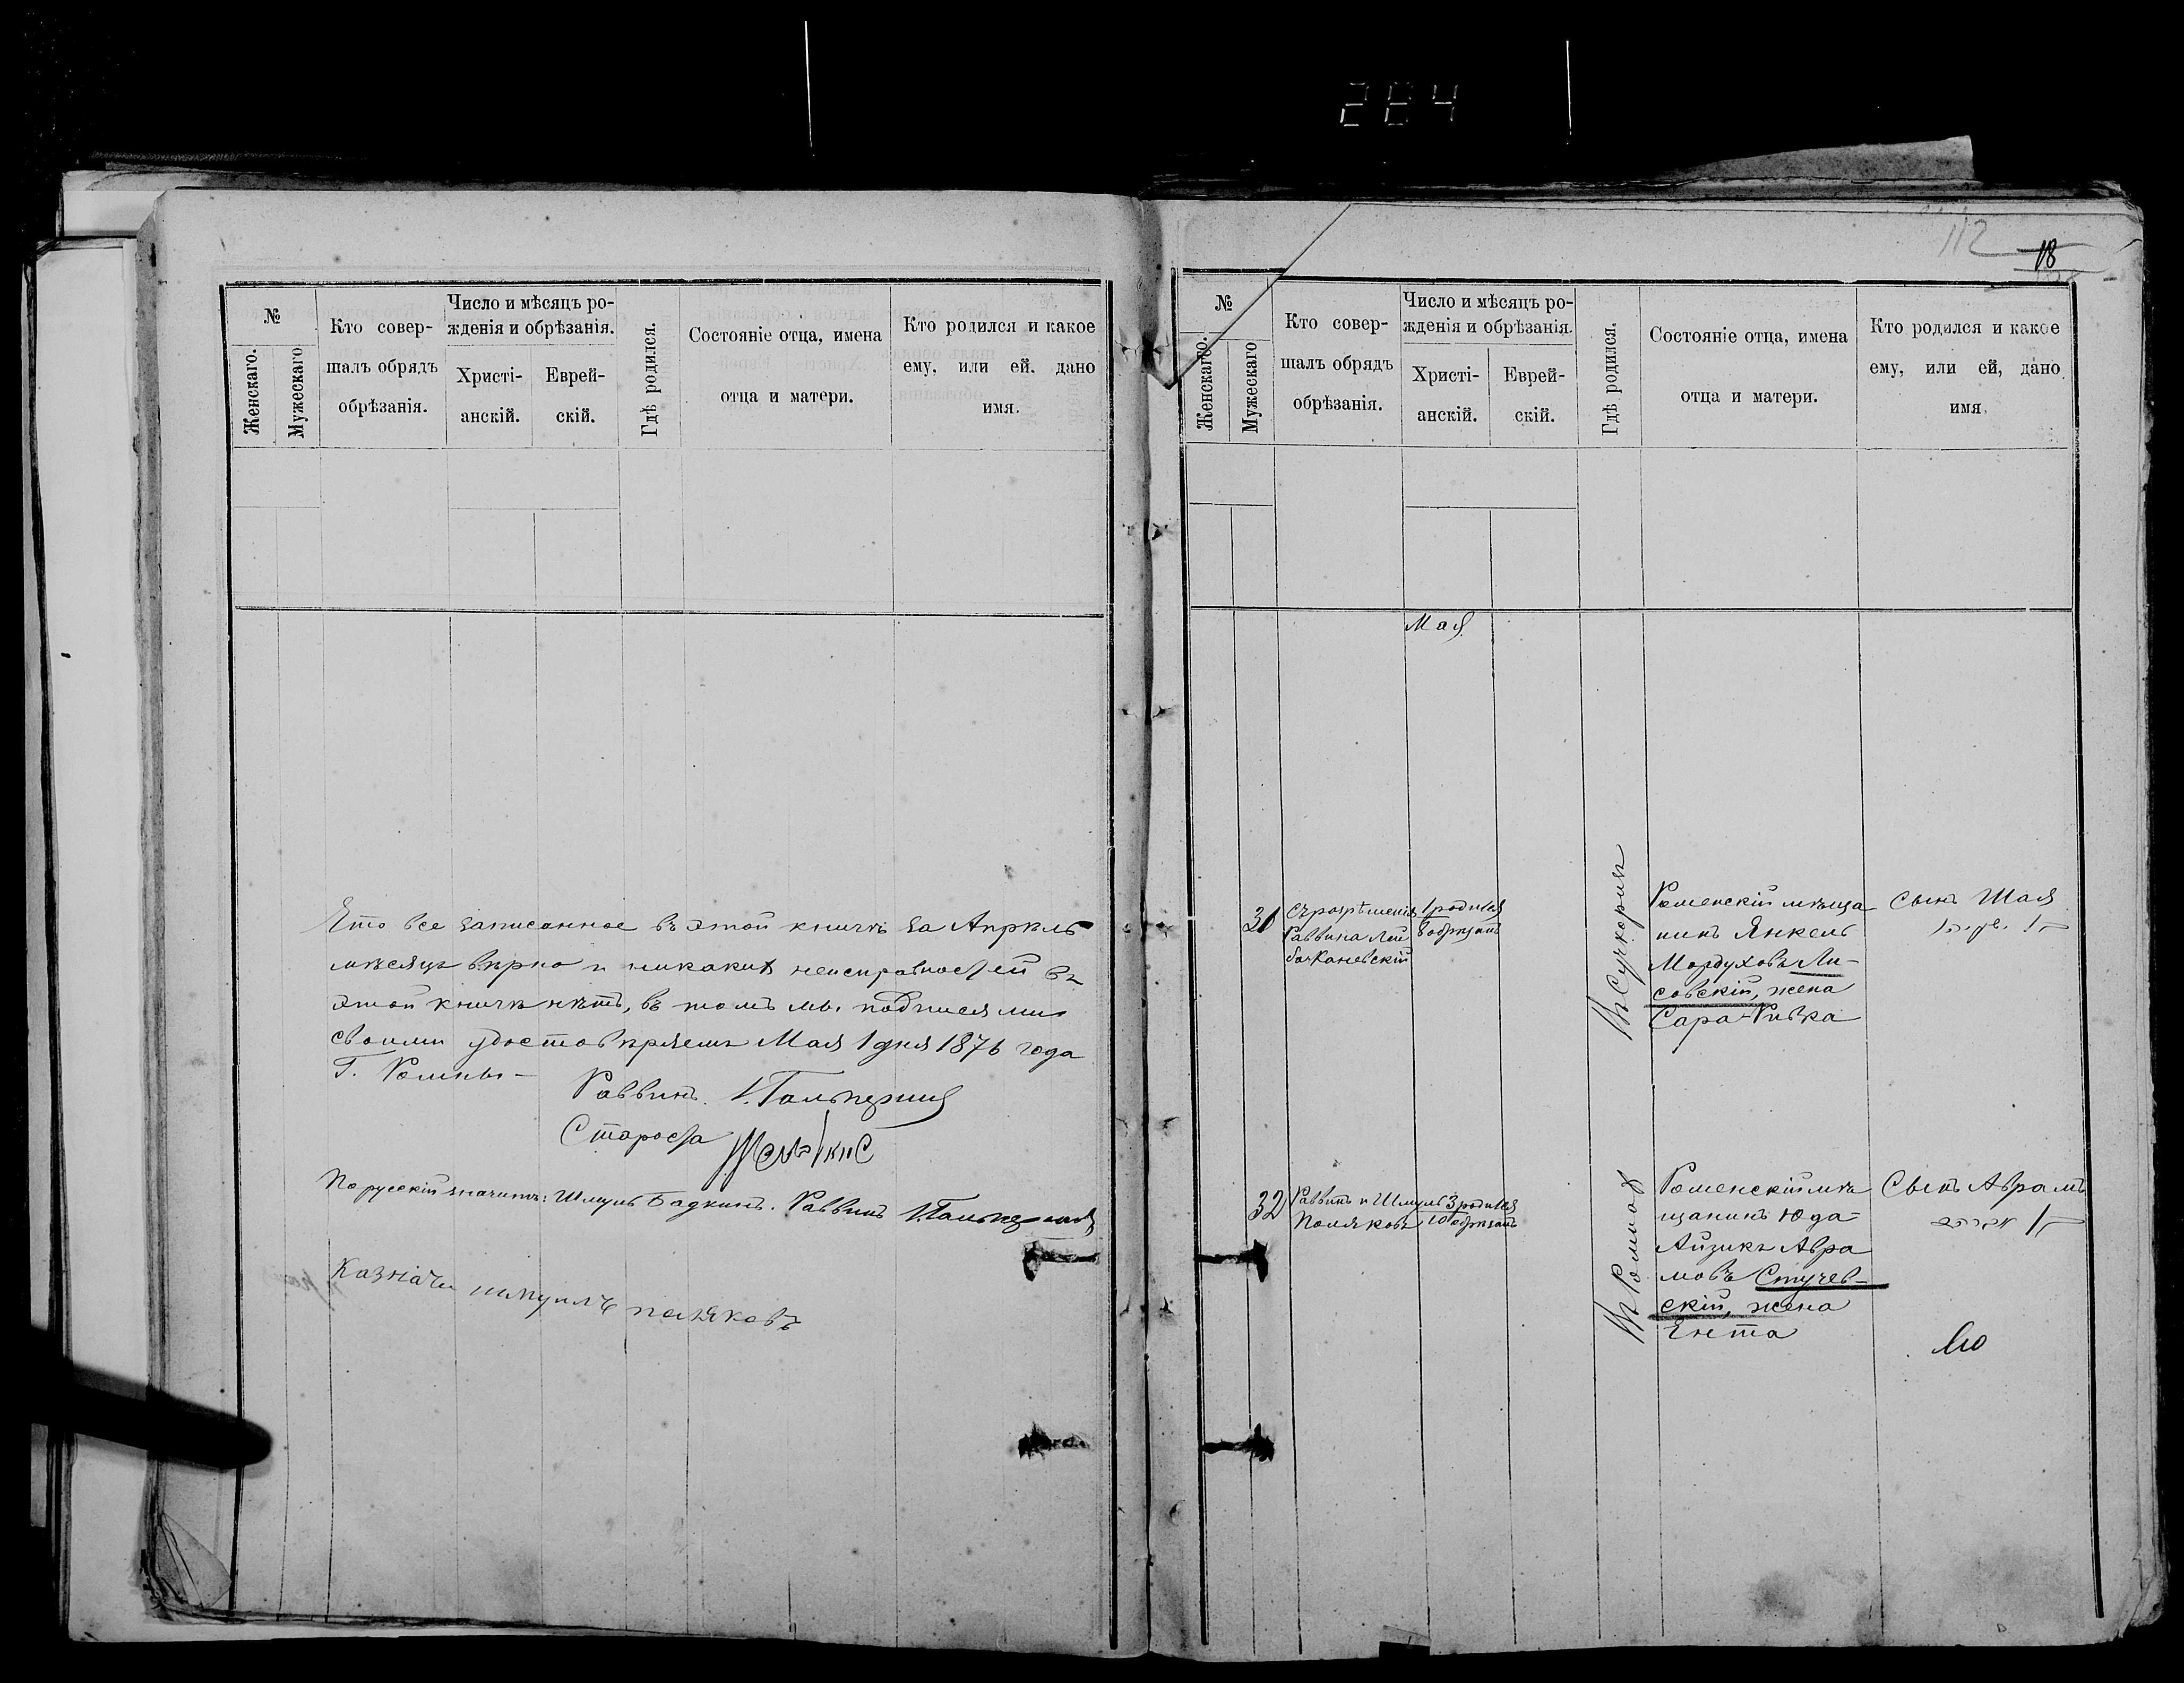 284
№
Женскаго.
Мужескаго
Кто совер-
шалъ обрядъ
обрѣзанія.
Число и мѣсяцъ ро-
жденія и обрѣзанія.
Христі-
анскій.
Еврей-
скій.
Гдѣ родился.
Состояніе отца, имена
отца и матери.
Кто родился и какое
ему, или ей, дано
имя.
Что все записанное въ этой книгѣ за Апрѣль
мѣсяцъ вѣрно и никакихъ неисправностей въ
этой книгѣ нѣтъ, въ томъ мы подписями
своими удостовѣряемъ Мая 1 дня 1876 года
Г. Ромны-
Раввинъ И. Гальперинъ
Староста
По русскій значитъ: Шмуль Бадкинъ. Раввинъ И. Гальперинъ
Казначи шмуилъ поляковъ
112
18
№
Женскаго.
Мужескаго
Кто совер-
шалъ обрядъ
обрѣзанія.
Число и мѣсяцъ ро-
жденія и обрѣзанія.
Христі-
анскій.
Еврей-
скій.
Гдѣ родился.
Состояніе отца, имена
отца и матери.
Кто родился и какое
ему, или ей, дано
имя.
Мая
31
Съ разрѣшенія
Раввина Лей
ба Каневскій
1 родился
8 обрѣзанъ
Роменскій мѣща
нинъ Янкель
Мордуховъ Ли-
совскій, жена
Сара-Ривка
Сынъ Шая
32
Раввинъ и Шмуль
Поляковъ
3 родился
10 обрѣзанъ
Въ Ромнахъ
Роменскій мѣ
щанинъ Юда-
Айзикъ Авра
мовъ Стучев-
скій, жена
Ента
Сынъ Аврамъ